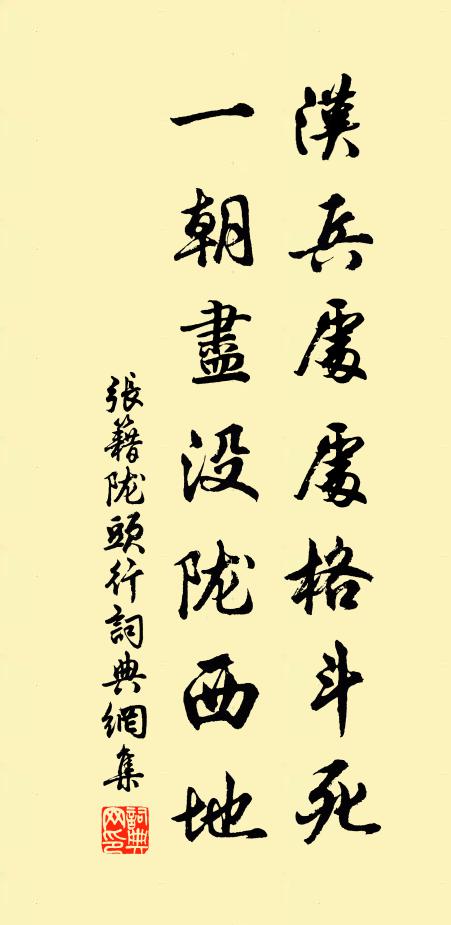 漢兵處處格斗死
一朝盡没陇西地
張籍陇頭行詞典網集
詞典
网印